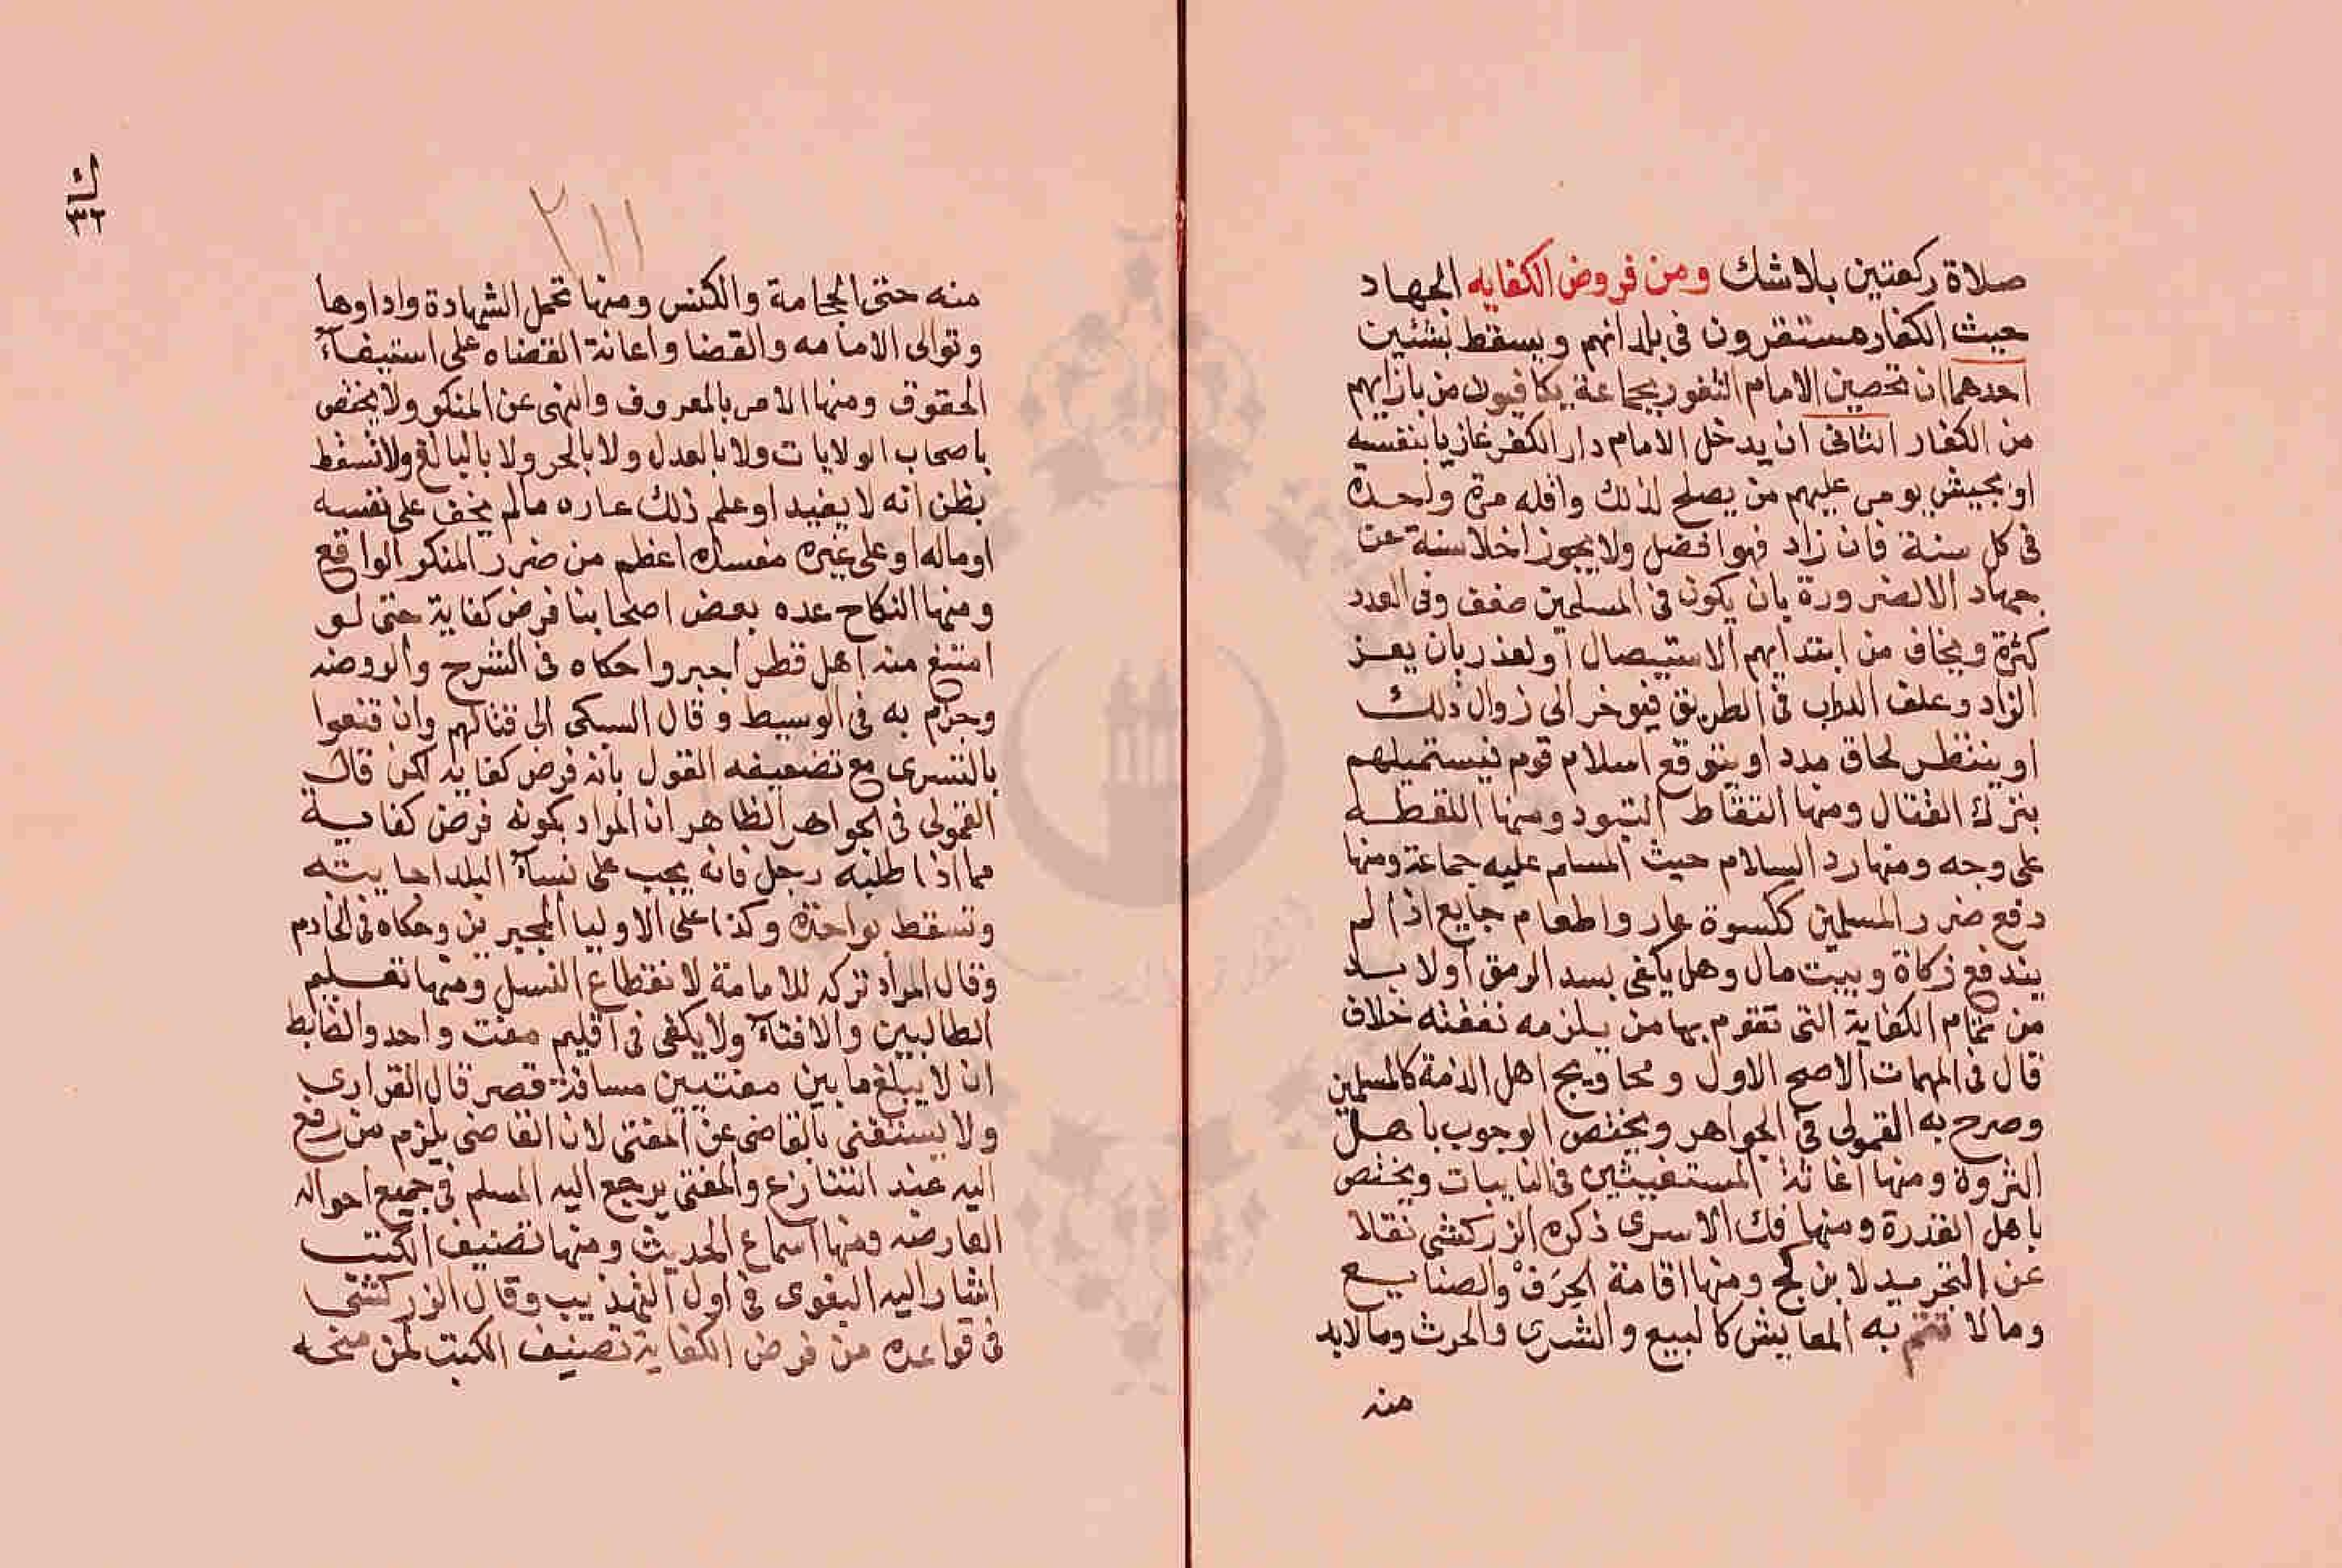 صلاة ركعتين بلاشك ومن فروض الكفايه الجهاد
حيث الكفار مستقرون فى بلدانهم ويسقط بشئين
احدهما ان تحصين الامام الثغور بجماعة يكافيون من بازايهم
من الكفار الثانى ان يدخل الامام دار الكفر غازيا بنفسه
او بجيش يومى عليهم من يصلح لذلك واقله مرة واحدة
فى كل سنة فان زاد فهو افضل ولا يجوز اخلا سنة عن
جهاد الا لضرورة بان يكون فى المسلمين ضعف وفى العدد
كثرة ويخاف من ابتدايهم الاستيصال او لعذر بان يعز
الزاد وعلف الدواب فى الطريق فيوخر الى زوال ذلك
او ينتظر لحاق مدد او يتوقع اسلام قوم فيستميلهم
بترك القتال ومنها التقاط المنبود ومنها اللقطه
على وجه ومنها رد السلام حيث المسلم عليه جماعة ومنها
دفع ضرر المسلمين ككسوة عار واطعام جايع اذا لم
يندفع زكاة وبيت مال وهل يكفى بسد الرمق او لا بد
من تمام الكفاية التى تقوم بها من يلزمه نفقته خلاف
قال فى المهمات الاصح الاول ومحاويج اهل الذمة كالمسلمين
وصرح به القمولى فى الجواهر ويختص الوجوب باهل
الثروة ومنها اغاثة المستغيثين فى النايبات ويختص
باهل القدرة ومنها فك الاسرى ذكره الزركشى نقلا
عن التجريد لابن كج ومنها اقامة الحِرَفْ والصنايع
ومالا تتم به المعايش كالبيع والشرى والحرث ومالا بد
منه
٢١١
ك
٣٢
منه حتى الحجامة والكنس ومنها تحمل الشهادة واداوها
وتوالى الامامه والقضا واعانة القضاه على استيفآء
الحقوق ومنها الامر بالمعروف والنهى عن المنكر ولا يختص
باصحاب الولايات ولا بالعدل ولا بالحر ولا بالبالغ ولا تسقط
بظن انه لا يفيد او علم ذلك عاره مالم يخف على نفسه
او ماله او على غيره مفسدة اعظم من ضرر المنكر الواقع
ومنها النكاح عده بعض اصحابنا فرض كفاية حتى لو
امتنع منه اهل قطر اجبروا حكاه فى الشرح والروضه
وجزم به فى الوسيط وقال السبكى الى قتالهم وان قنعوا
بالتسرى مع تضعيفه القول بانه فرض كفايه لكن قال
القمولى فى الجواهر الظاهر ان المراد بكونه فرض كفاية
مما اذا طلبه رجل فانه يجب على نسآء البلد اجابته
وتسقط بواحدة وكذا على الاوليا المجبرين وحكاه فى الخادم
وقال المراد تركه للامامة لانقطاع النسل ومنها تعليم
الطالبين والافتآء ولا يكفى فى اقليم مفت واحد والضابط
ان لا يبلغ ما بين مفتيين مسافة قصر قال الفزارى
ولا يستغنى بالقاضى عن المفتى لان القاضى يلزم من رفع
اليه عند التنازع والمفتى يرجع اليه المسلم فى جميع احواله
العارضه ومنها اسماع الحديث ومنها تصنيف الكتب
اشار اليه البغوى فى اول التهذيب وقال الزركشى
فى قواعده من فرض الكفاية تصنيف الكتب لمن منحه